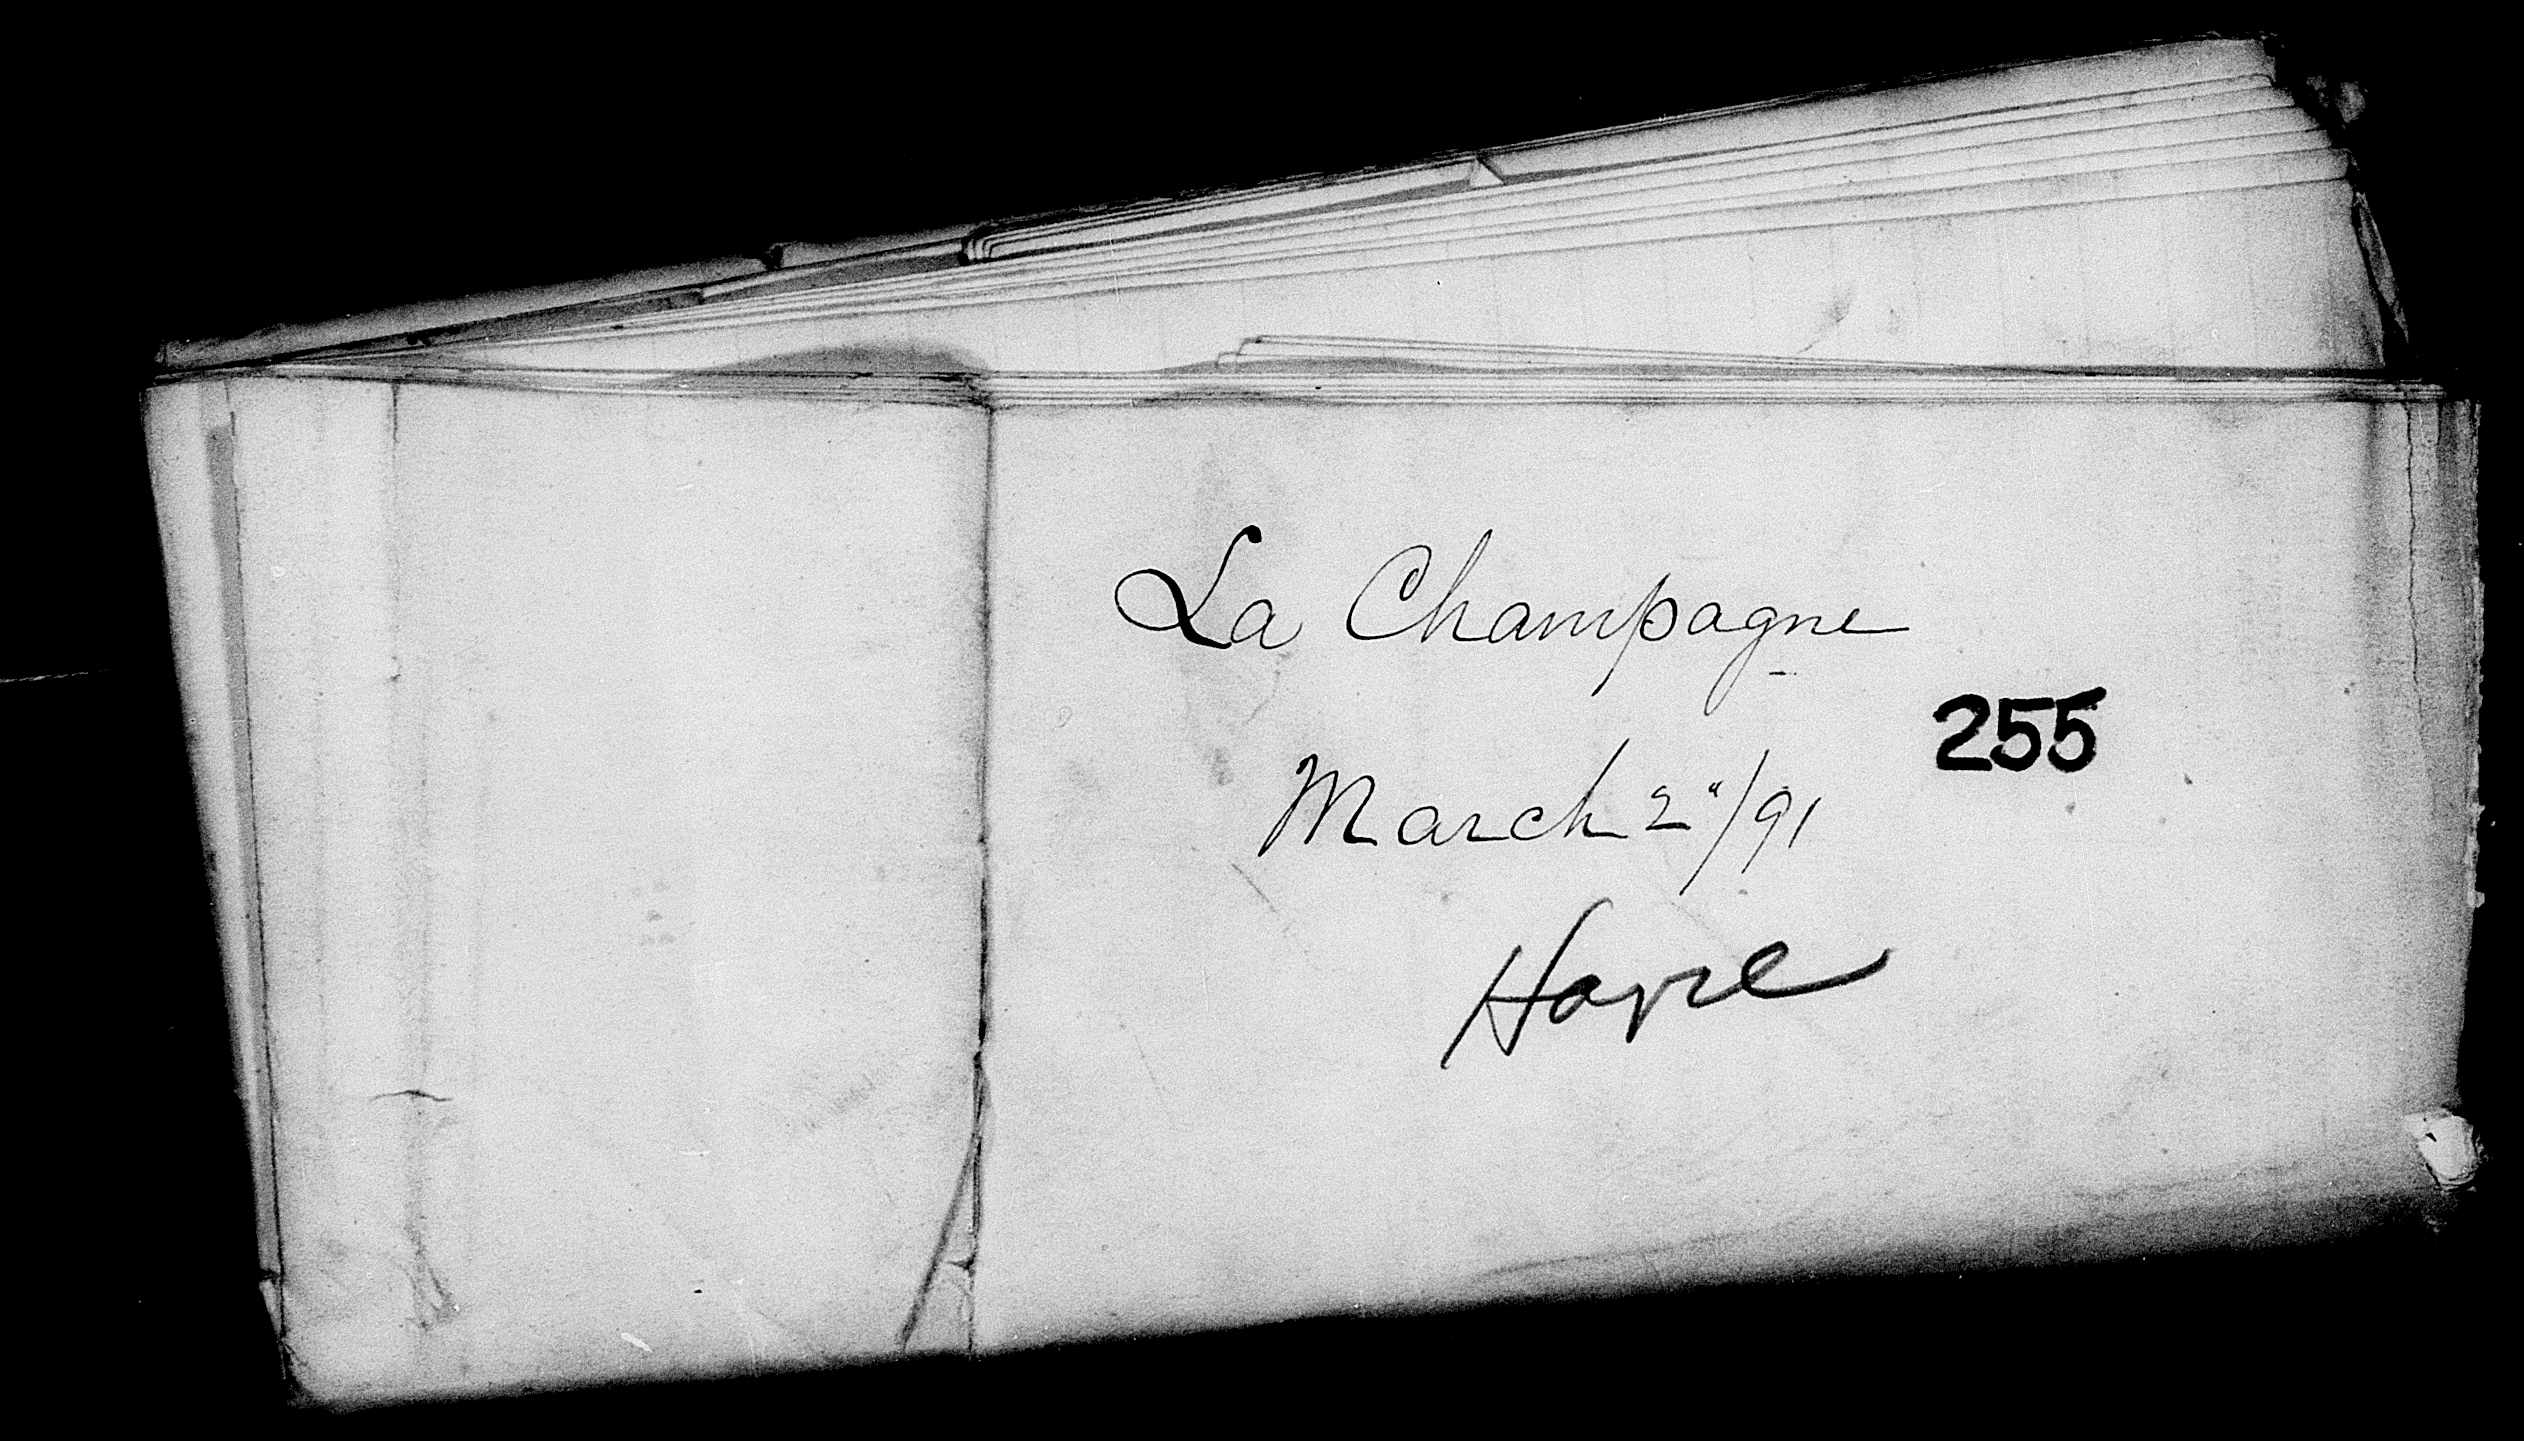 La Champagne
255
March 2"/91
Havre